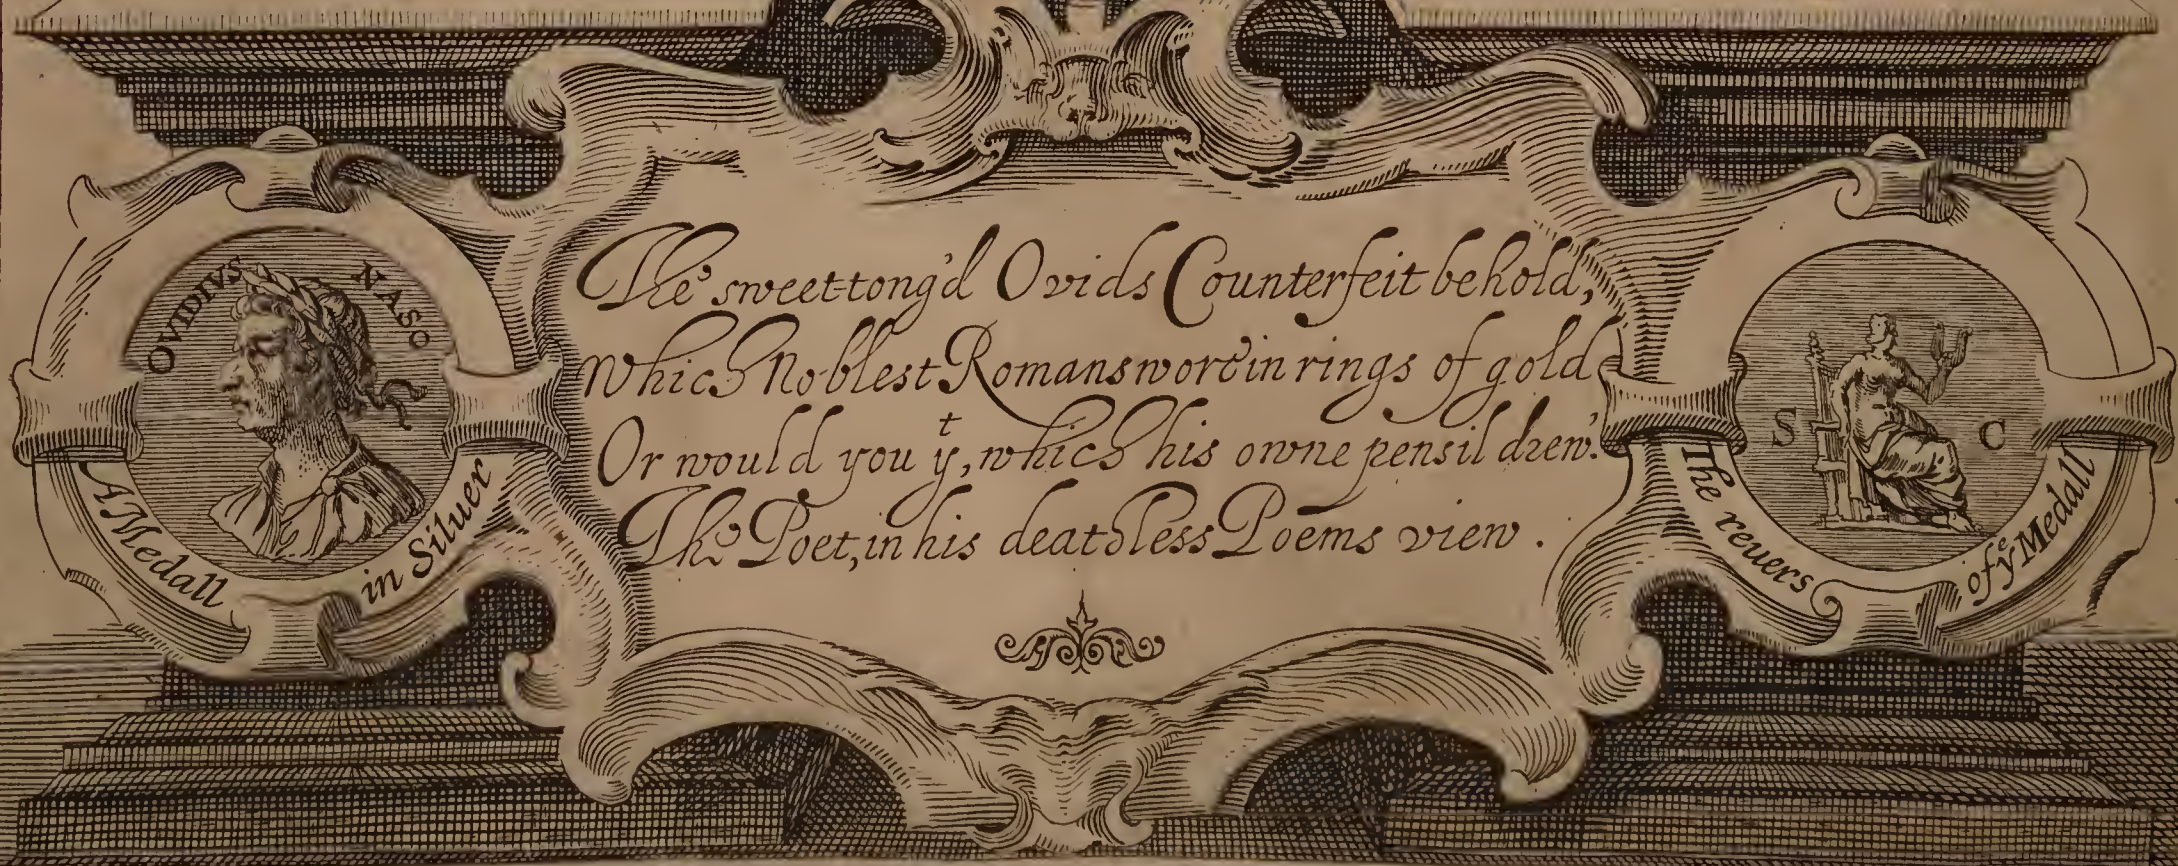 OVIDIVS NASO
A Medall in Siluer
The sweet-tong'd Ovids Counterfeit behold,
Which Noblest Romans wore in rings of gold
Or would you yᵗ, which his owne pensil drew.
The Poet, in his deathless Poems view.
S C
The reuers of yᵉ Medall